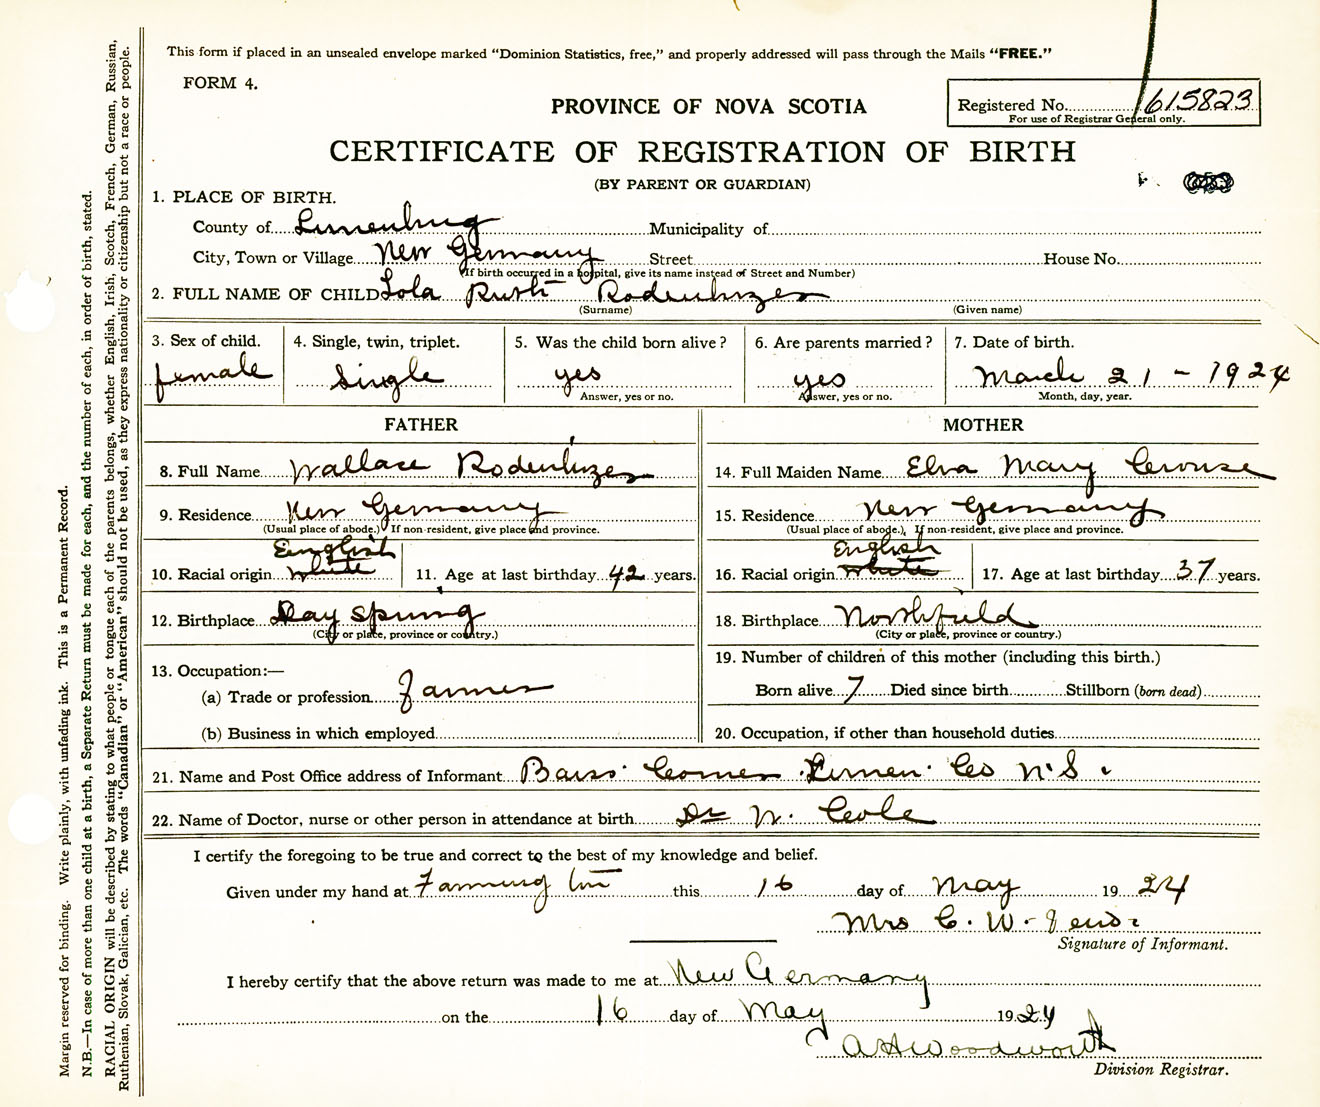 This form if placed in an unsealed envelope marked "Dominion Statistics, free," and properly addressed will pass through the Mails "FREE."
FORM 4.
PROVINCE OF NOVA SCOTIA
Registered No. 615823
For use of Registrar General only.
CERTIFICATE OF REGISTRATION OF BIRTH
(BY PARENT OR GUARDIAN)
1. PLACE OF BIRTH.
County of Lunenburg Municipality of
City, Town or Village New Germany Street House No.
(If birth occurred in a hospital, give its name instead of Street and Number)
2. FULL NAME OF CHILD Lola Ruth Rodenhizer
(Surname) (Given name)
3. Sex of child. 4. Single, twin, triplet. 5. Was the child born alive? 6. Are parents married? 7. Date of birth.
female single yes yes March 21 - 1924
Answer, yes or no. Answer, yes or no. Month, day, year.
FATHER MOTHER
8. Full Name Wallace Rodenhizer 14. Full Maiden Name Elva Mary Crouse
9. Residence New Germany 15. Residence New Germany
(Usual place of abode.) If non-resident, give place and province. (Usual place of abode.) If non-resident, give place and province.
English English
10. Racial origin white 11. Age at last birthday 42 years. 16. Racial origin white 17. Age at last birthday 37 years.
12. Birthplace Day Spring 18. Birthplace Northfield
(City or place, province or country.) (City or place, province or country.)
13. Occupation:— 19. Number of children of this mother (including this birth.)
(a) Trade or profession Farmer Born alive 7 Died since birth Stillborn (born dead)
(b) Business in which employed 20. Occupation, if other than household duties
21. Name and Post Office address of Informant Barss Corner Lunen. Co N.S.
22. Name of Doctor, nurse or other person in attendance at birth Dr W. Cole
I certify the foregoing to be true and correct to the best of my knowledge and belief.
Given under my hand at Farmington this 16 day of May 1924
Mrs C. W.
Signature of Informant.
I hereby certify that the above return was made to me at New Germany
on the 16 day of May 1924
A H Woodworth
Division Registrar.
Margin reserved for binding. Write plainly, with unfading ink. This is a Permanent Record.
N.B.—In case of more than one child at a birth, a Separate Return must be made for each, and the number of each, in order of birth, stated.
RACIAL ORIGIN will be described by stating to what people or tongue each of the parents belongs, whether English, Irish, Scotch, French, German, Russian,
Ruthenian, Slovak, Galician, etc. The words "Canadian" or "American" should not be used, as they express nationality or citizenship but not a race or people.